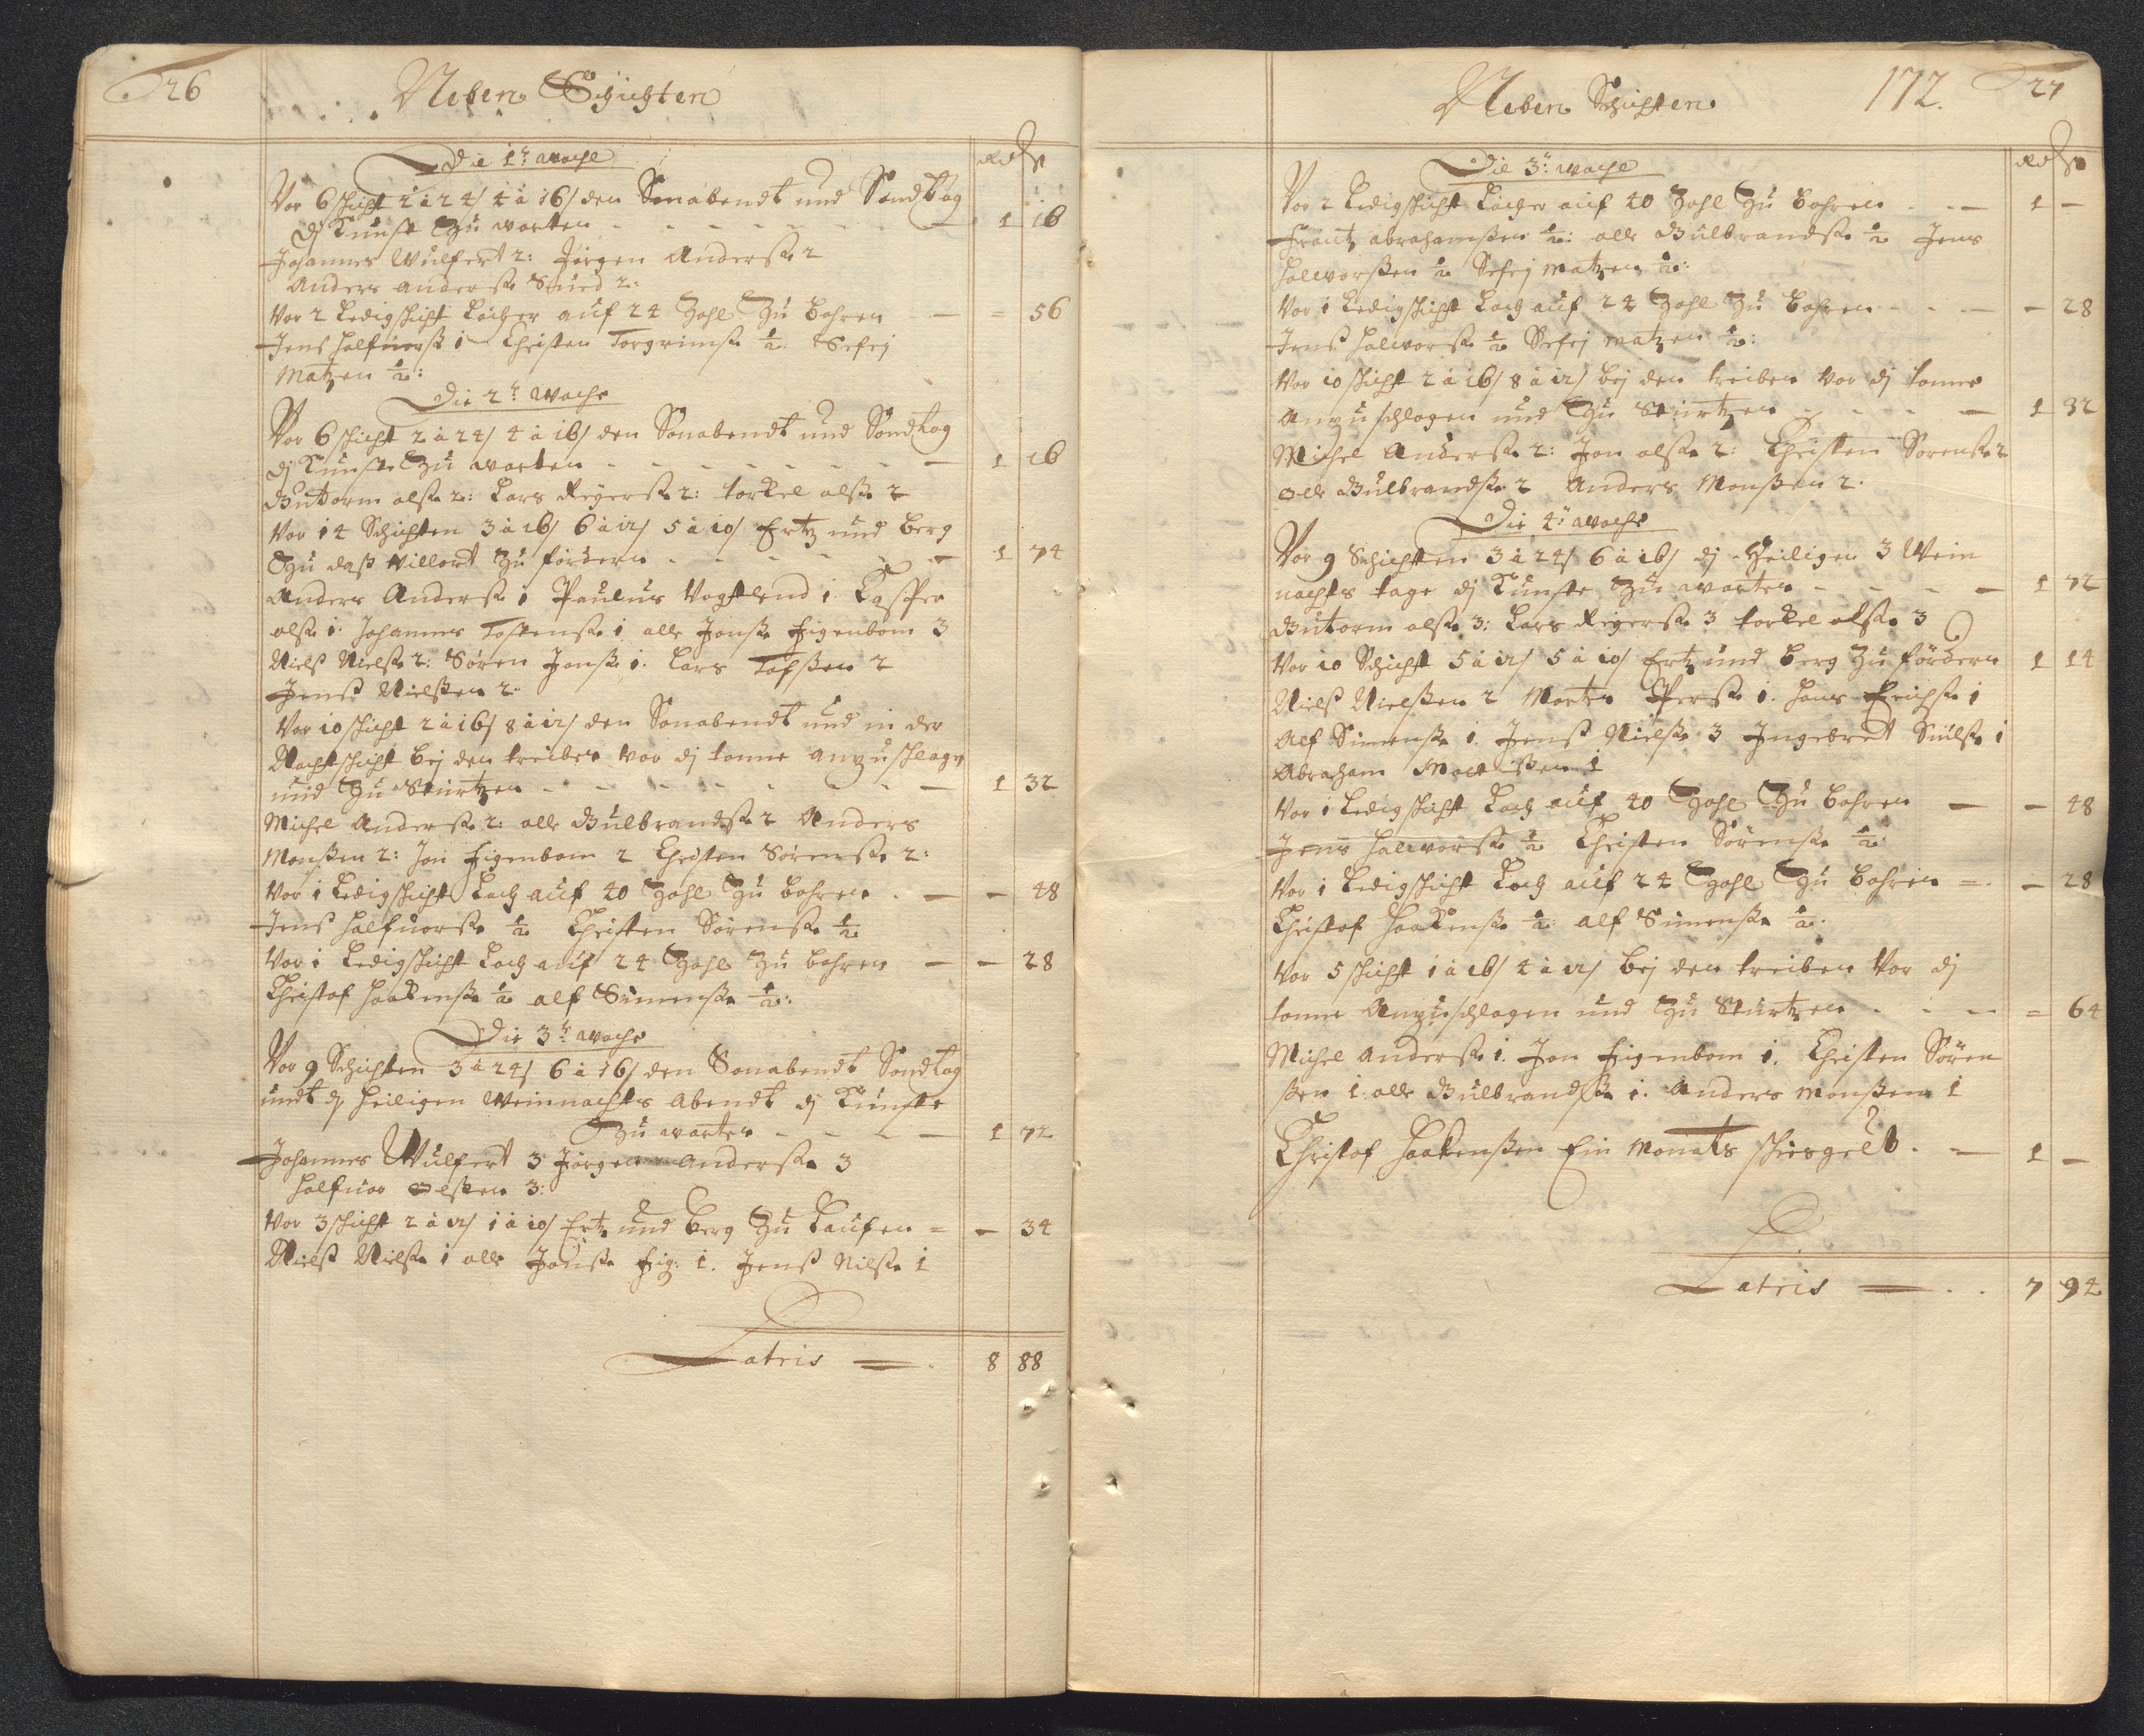 26
Neben Schichten
Die 1te woche
Rd ß
Vor 6 schicht 2 à 24/ 4 à 16/ den Sonabendt und Sondtag
dj Kunst zu warten - - - - - - 1 16
Johannes Wulfert 2: Jörgen Anderß 2
Anders anderß Sued 2:
Vor 2 Ledigschicht Löcher auf 24 Zohl zu bohren - = 56
Jens halfuorß 1 Christen Torgrimß ½ Sefej
Matzen ½:
Die 2te Woche
Vor 6 schicht 2 à 24/ 4 à 16/ den Sonabendt und Sondtag
dj Kunste zu warten - - - - - - 1 16
Gutorm olß 2: Lars Reyerß 2: torkel olß 2
Vor 14 Schichten 3 à 16/ 6 à 12/ 5 à 10/ Ertz und berg
zu daß willort zu fördern - - - - 1 74
Anders Anderß 1 Paulus Vogtlend 1. Casper
olß 1. Johannes Tostenß 1. olle Jonß Eigenbom 3
Nielß Nielß 2: Sören Jonß 1. Lars Tosßen 2
Jenß Nielßen 2.
Vor 10 schicht 2 à 16/ 8 à 12/ den Sonabendt und in der
Nachtschicht bej den treiben vor dj tonne anzuschlagen
und zu Stürtzen - - - - - - 1 32
Michel Anderß 2: olle Gulbrandß 2 Anders
Monßen 2: Jon Eigenbom 2 Christen Sörenß 2:
Vor 1 Ledigschicht Loch auf 40 Zohl zu bohren - - 48
Jens halfuorß ½ Christen Sörenß ½
Vor 1 Ledigschicht Loch auf 24 Zohl zu bohren - - 28
Christof haakenß ½ alf Simenß ½:
Die 3te woche
Vor 9 Schichten 3 à 24/ 6 à 16/ den Sonabendt Sondtag
undt dj heiligen Weinnachts Abendt dj Künste
zu warten - - - - 1 72
Johannes Wulfert 3 Jörgen Anderß 3
halfuor olßen 3:
Vor 3 schicht 2 à 12/ 1 à 10/ Ertz und berg zu Laufen = - 34
Nielß Nielß 1 olle Jonß Eig: 1. Jenß Nilß 1
Latris = 8 88
172. 27
Neben Schichten
Rd ß
Die 3te woche
Vor 2 Ledigschicht Löcher auf 40 Zohl zu bohren - - 1 -
Frantz abrahamßen ½: olle Gulbrandß ½ Jens
halworßen ½ Sefej matzen ½:
Vor 1 Ledigschicht Loch auf 24 Zohl zu bohren - - - 28
Jenß halworß ½ Sefej matzen ½:
Vor 10 schicht 2 à 16/ 8 à 12/ bej den treiben vor dj tonne
Anzuschlagen und zu Stürtzen - - - - 1 32
Michel Anderß 2: Jon olß 2: Christen Sorenß 2
olle Gulbrandß 2 Anders Monßen 2.
Die 4te woche
Vor 9 Schichten 3 à 24/ 6 à 16/ dj Heiligen 3 Wein
nachts tage dj Künste zu warten - - - - 1 72
Gutorm olß 3: Lars Reyerß 3 torkel olß 3
Vor 10 Schicht 5 à 12/ 5 à 10/ Ertz und berg zu fördern 1 14
Nielß Nielßen 2 Morten Perß 1. hans Erichß 1
Alf Simenß 1. Jenß Nielß 3 Ingebret Siulß 1
Abraham ßen 1
Vor 1 Ledigschicht Loch auf 40 Zohl zu bohren - - 48
Jens halworß ½ Christen Sörenß ½:
Vor 1 Ledigschicht Loch auf 24 Zohl zu bohren = - 28
Christof haakenß ½: alf Simenß ½:
Vor 5 schicht 1 à 16/ 4 à 12/ bej den treiben Vor dj
tonne Anzuschlagen und zu Stürtzen - - - = 64
Michel anderß 1. Jon Eigenbom 1. Christen Sören
ßen 1. olle Gulbrandß 1. Anders monßen 1
Christof haakenßen Ein Monats schiesgelt - - 1 -
Latris = 7 94